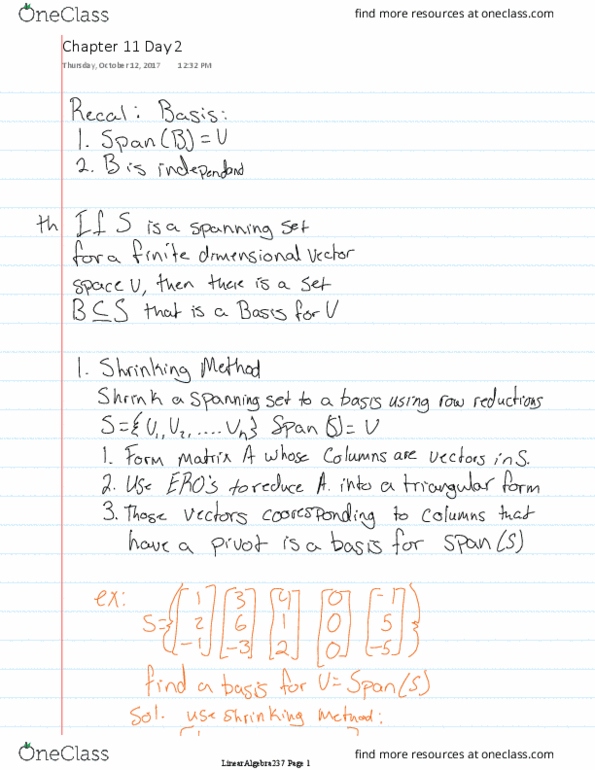 OneClass find more resources at oneclass.com
Chapter 11 Day 2
Thursday, October 12, 2017 12:32 PM
Recal: Basis:
1. Span(B) = V
2. B is independand
th If S is a spanning set
for a finite dimensional vector
space V, then there is a set
B ⊆ S that is a Basis for V
1. Shrinking Method
Shrink a spanning set to a basis using row reductions
S = {V₁, V₂, .... Vₙ} Span(S) = V
1. Form Matrix A whose columns are vectors in S.
2. Use ERO's to reduce A. into a triangular form
3. Those vectors cooresponding to columns that
have a pivot is a basis for span(S)
ex: [1 [3 [4 [0 [-1
S={ 2 6 1 0 5 }
-1] -3] 2] 0] -5]
find a basis for V = Span(S)
Sol. use shrinking method:
OneClass find more resources at oneclass.com
LinearAlgebra237 Page 1